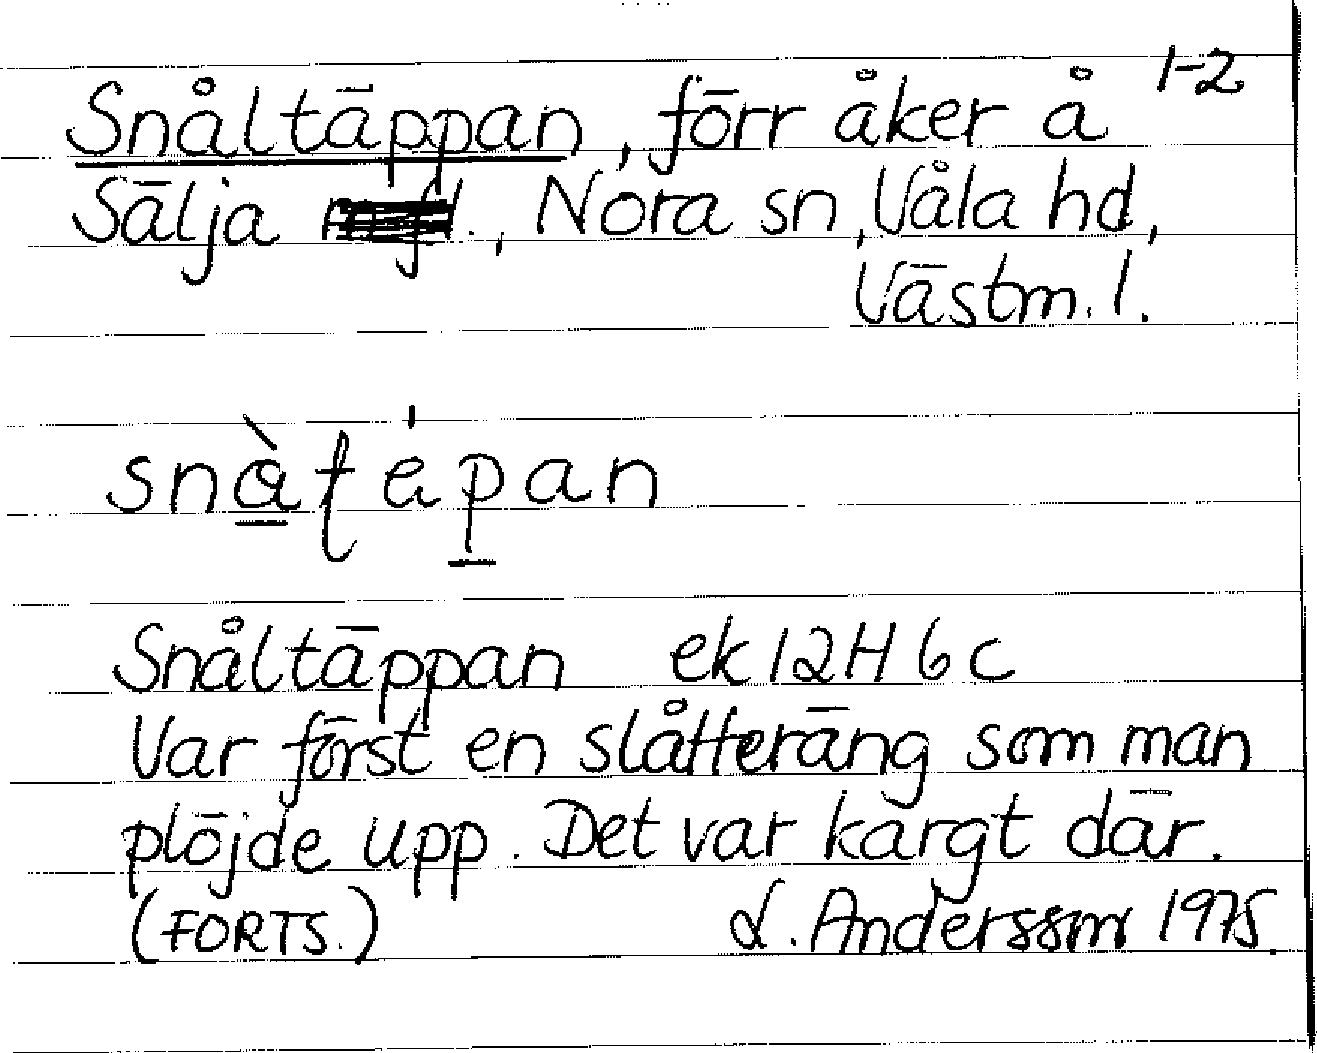 1-2
Snåltäppan, förr åker å
Sälja , Nora sn, Våla hd,
Västm. l.
snàtepan
Snåltäppan ek 12H 6c
Var först en slåtteräng som man
plöjde upp. Det var kargt där.
(FORTS.) L. Andersson 1975.